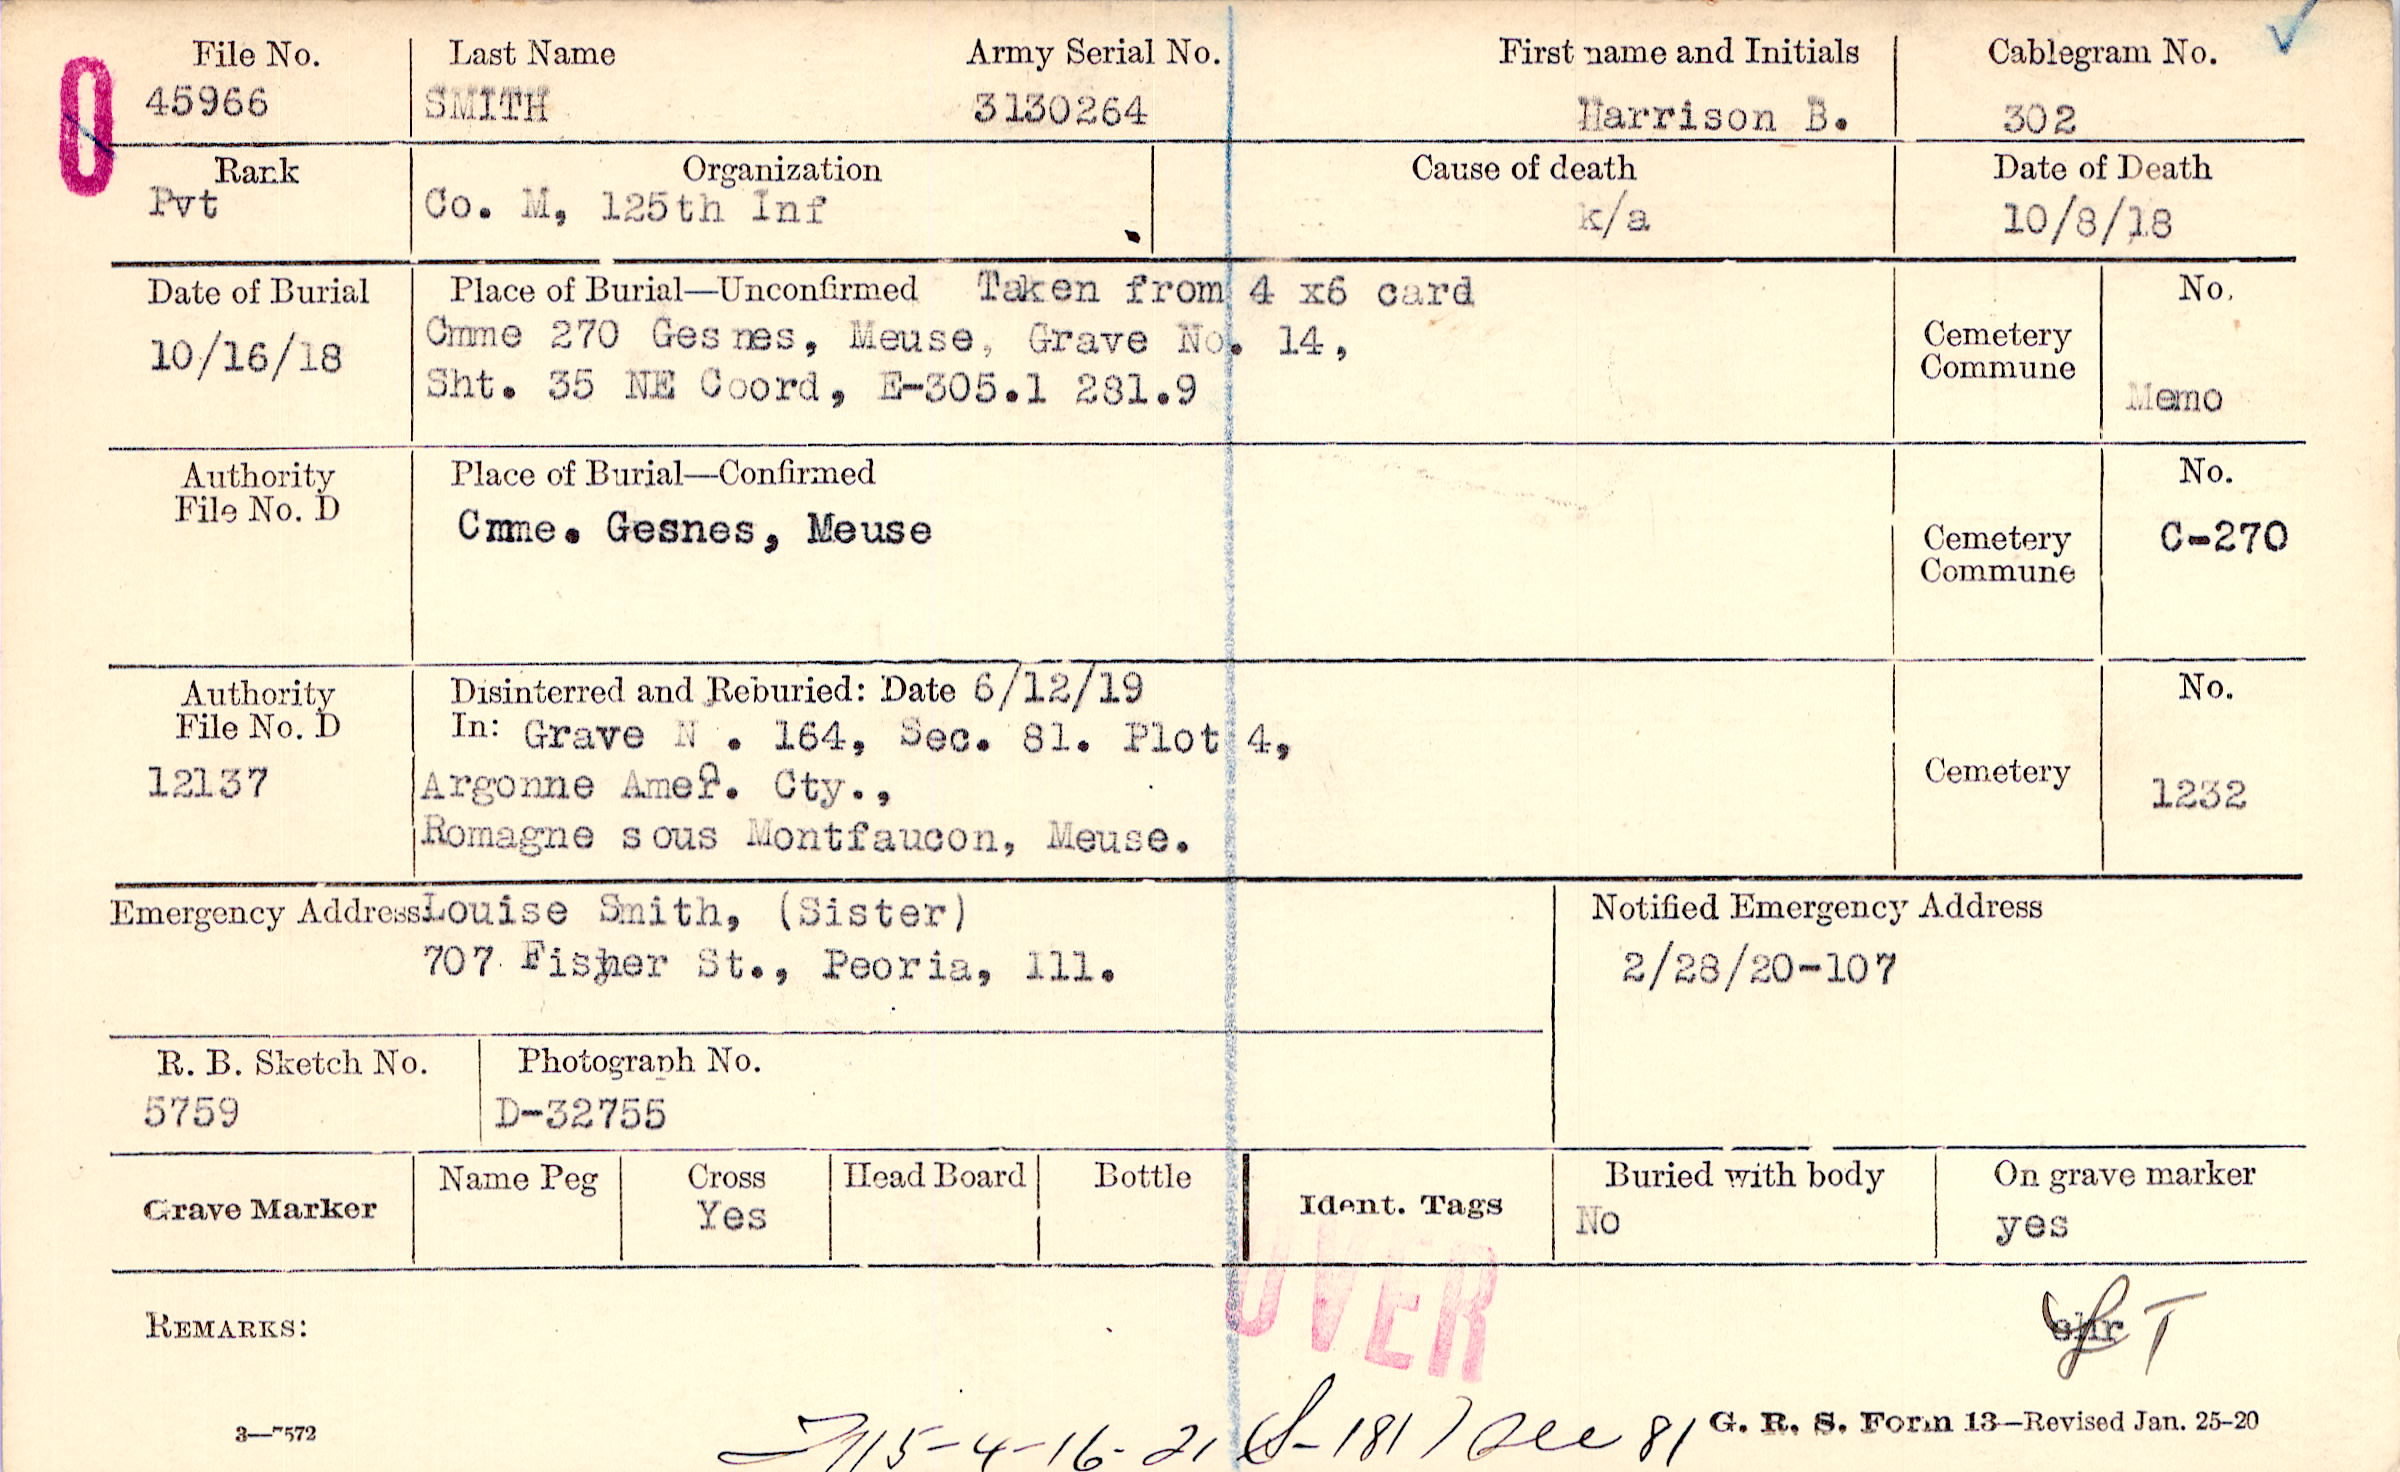 O
File No. Last Name Army Serial No. First name and Initials Cablegram No.
45966 SMITH 3130264 Harrison B. 302
Rank Organization Cause of death Date of Death
Pvt Co. M, 125th Inf k/a 10/8/18
Date of Burial Place of Burial—Unconfirmed Taken from 4 x6 card No.
10/16/18 Cmme 270 Gesnes, Meuse, Grave No. 14, Cemetery
Sht. 35 NE Coord, E-305.1 281.9 Commune Memo
Authority Place of Burial—Confirmed No.
File No. D Cmme. Gesnes, Meuse Cemetery C-270
Commune
Authority Disinterred and Reburied: Date 6/12/19 No.
File No. D In: Grave N . 164, Sec. 81. Plot 4,
12137 Argonne Amer. Cty., Cemetery 1232
Romagne sous Montfaucon, Meuse.
Emergency Address: Louise Smith, (Sister) Notified Emergency Address
707 Fisher St., Peoria, Ill. 2/28/20-107
R. B. Sketch No. Photograph No.
5759 D-32755
Grave Marker Name Peg Cross Head Board Bottle Ident. Tags Buried with body On grave marker
Yes No yes
OVER
REMARKS:
3—7572 15-4-16-21 (S-181) See 81 G. R. S. Form 13—Revised Jan. 25-20